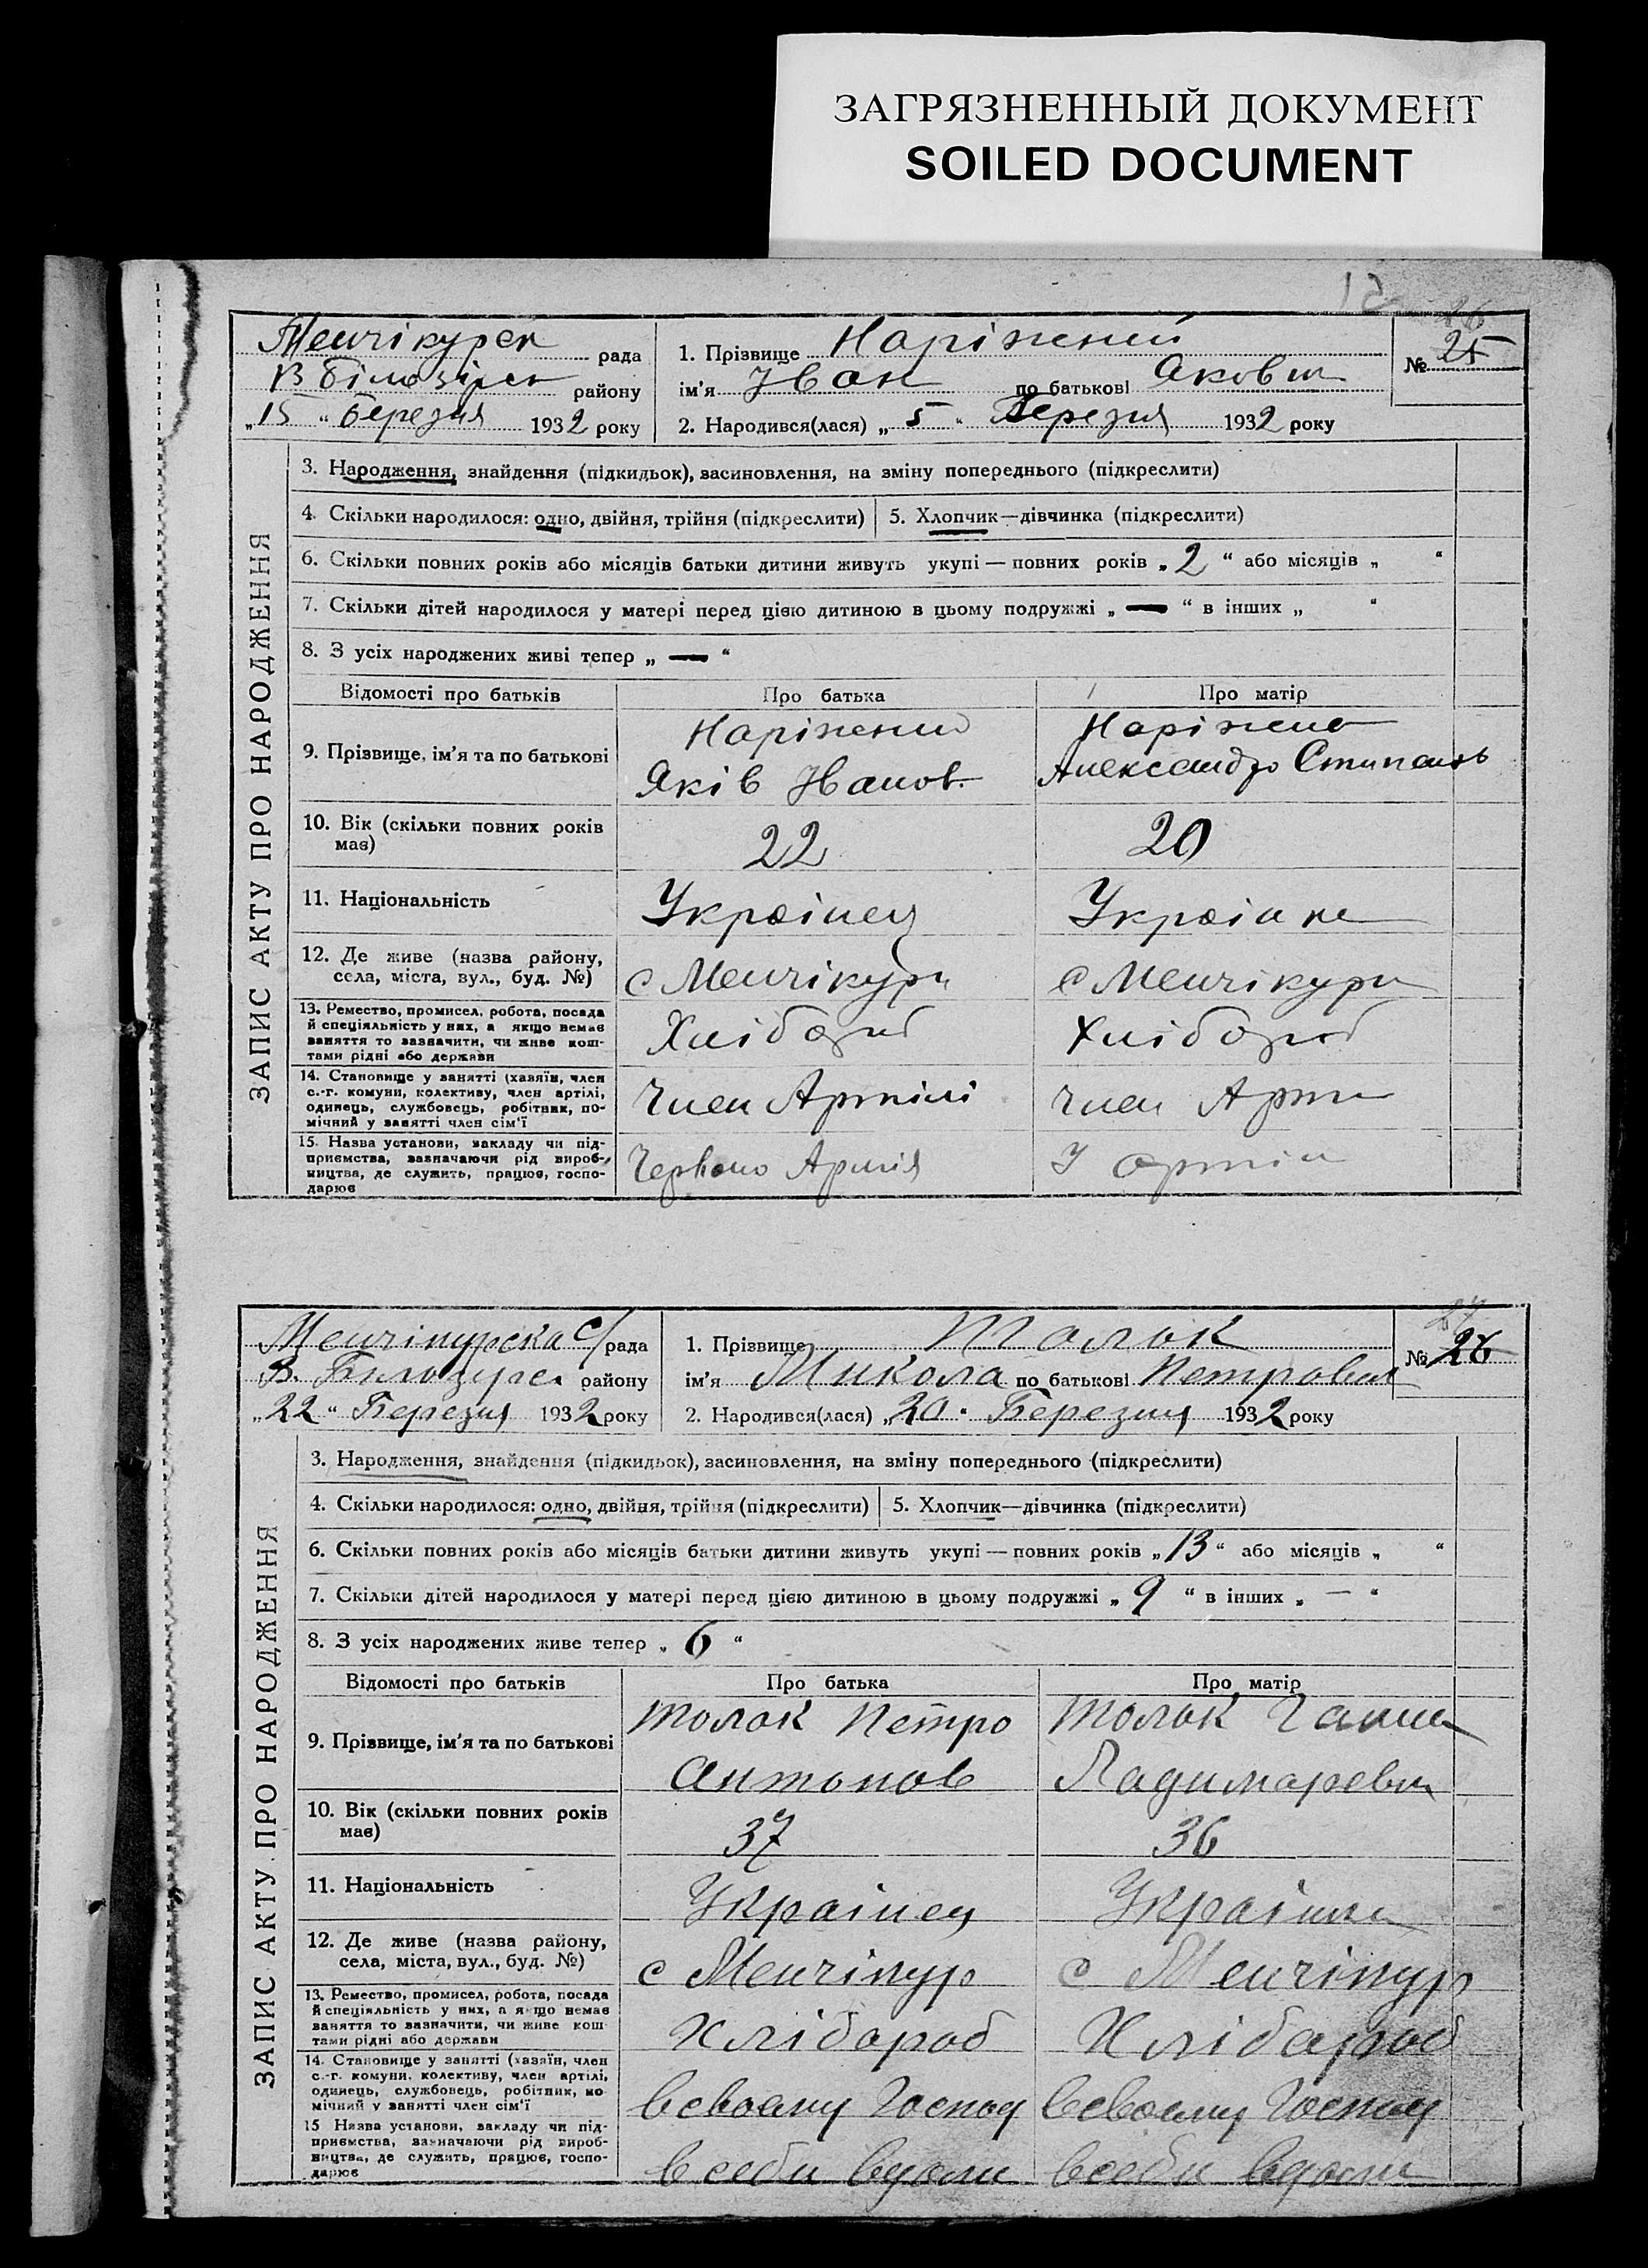 ЗАГРЯЗНЕННЫЙ ДОКУМЕНТ
SOILED DOCUMENT
51
26
Менчікурск рада
В білозірск району
„15“ березня 1932 року
1. Прізвище Наріжний
ім'я Іван по батькові Якович
2. Народився(лася) „5“ Березня 1932 року
№ 25
ЗАПИС АКТУ ПРО НАРОДЖЕННЯ
3. Народження, знайдення (підкидьок), засиновлення, на зміну попереднього (підкреслити)
4. Скільки народилося: одно, двійня, трійня (підкреслити) 5. Хлопчик—дівчинка (підкреслити)
6. Скільки повних років або місяців батьки дитини живуть укупі — повних років „2“ або місяців „ “
7. Скільки дітей народилося у матері перед цією дитиною в цьому подружжі „—“ в інших „ “
8. З усіх народжених живі тепер „—“
Відомості про батьків Про батька Про матір
9. Прізвище, ім'я та по батькові
Наріжний
Яків Іванов.
Наріжна
Александра
10. Вік (скільки повних років
має)
22 20
11. Національність Украінец Украінка
12. Де живе (назва району,
села, міста, вул., буд. №)
с Менчікури с Менчікури
13. Ремество, промисел, робота, посада
й спеціяльність у них, а якщо немає
заняття то зазначити, чи живе кош-
тами рідні або держави
Хлібороб Хлібороб
14. Становище у занятті (хазяїн, член
с.-г. комуни, колективу, член артілі,
одинець, службовець, робітник, по-
мічний у занятті член сім'ї
Член Артілі член Арти
15. Назва установи, закладу чи під-
приємства, зазначаючи рід вироб-
ництва, де служить, працює, госпо-
дарює
Червоно Армія У артілі
27
Менчікурска с/рада
В. Билозирск району
„22“ Березня 1932 року
1. Прізвище Толок
ім'я Микола по батькові Петрович
2. Народився(лася) „20“ Березня 1932 року
№ 26
ЗАПИС АКТУ ПРО НАРОДЖЕННЯ
3. Народження, знайдення (підкидьок), засиновлення, на зміну попереднього (підкреслити)
4. Скільки народилося: одно, двійня, трійня (підкреслити) 5. Хлопчик—дівчинка (підкреслити)
6. Скільки повних років або місяців батьки дитини живуть укупі — повних років „13“ або місяців „ “
7. Скільки дітей народилося у матері перед цією дитиною в цьому подружжі „9“ в інших „—“
8. З усіх народжених живе тепер „6“
Відомості про батьків Про батька Про матір
9. Прізвище, ім'я та по батькові
Толок Петро
Антонов
Толок Ганна
10. Вік (скільки повних років
має)
37 36
11. Національність Украінец Украінка
12. Де живе (назва району,
села, міста, вул., буд. №)
с Менчікур с Менчікур
13. Ремество, промисел, робота, посада
й спеціяльність у них, а якщо немає
заняття то зазначити, чи живе кош-
тами рідні або держави
Хлібороб Хлібароб
14. Становище у занятті (хазяїн, член
с.-г. комуни, колективу, член артілі,
одинець, службовець, робітник, по-
мічний у занятті член сім'ї
всвоему Господ всвоему Господ
15 Назва установи, закладу чи під-
приємства, зазначаючи рід вироб-
ництва, де служить, працює, госпо-
дарює
в себи вдоми в себи вдоми